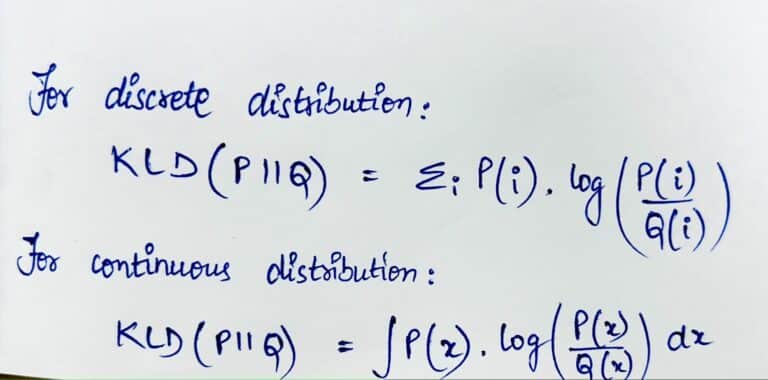 For discrete distribution:
KLD(P||Q) = Σᵢ P(i). log(P(i)/Q(i))
For continuous distribution:
KLD(P||Q) = ∫P(x). log(P(x)/Q(x)) dx